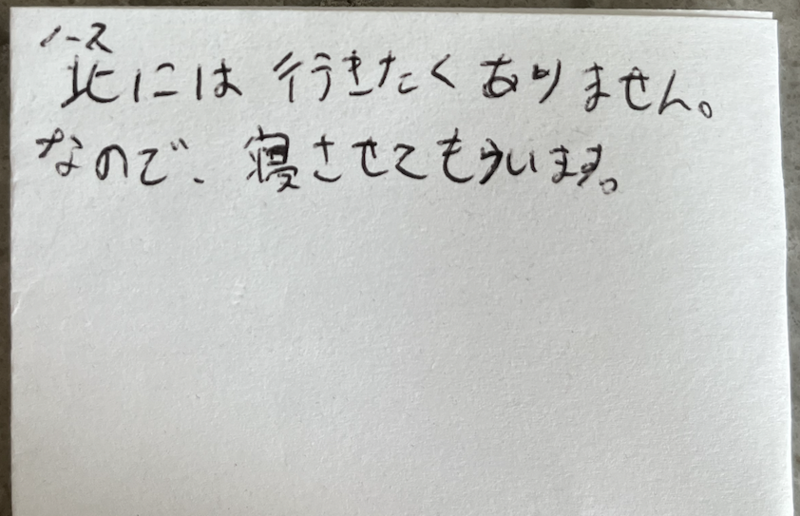 ノース
北には行きたくありません。
なので、寝させてもらいます。